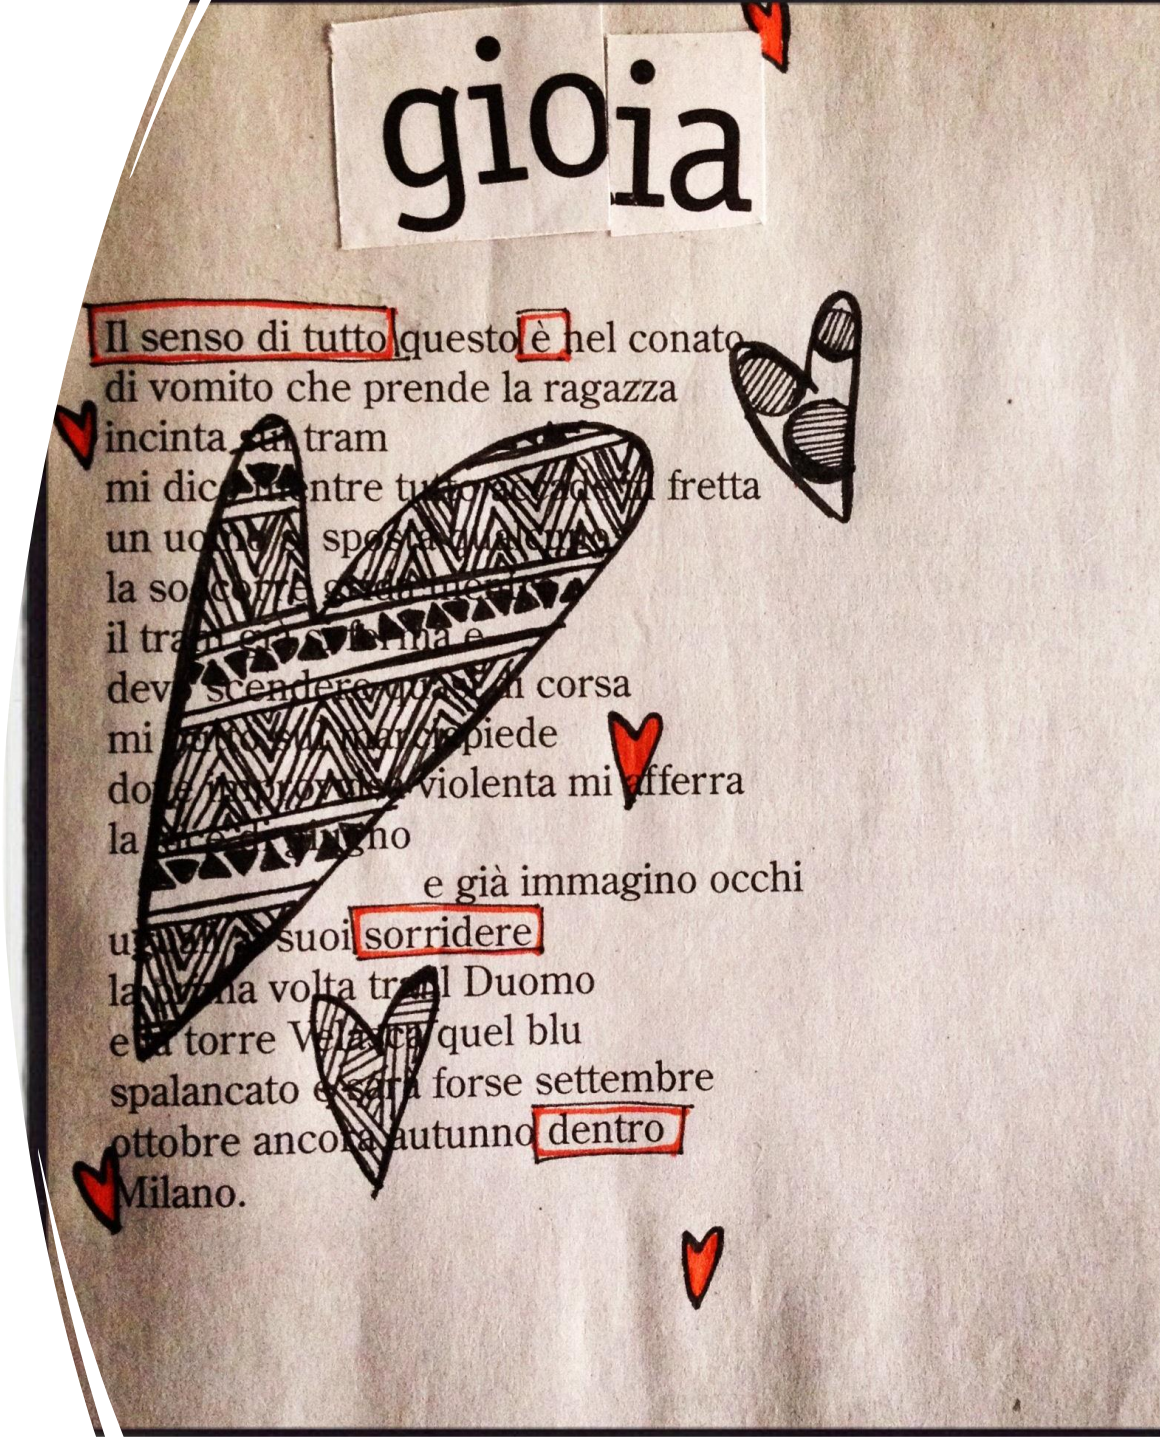 gioia
Il senso di tutto questo è nel conato
di vomito che prende la ragazza
incinta sul tram
mi dico mentre tutto accade in fretta
un uomo sposta qualcuno
la soccorre grida
il tram già si ferma e
devo scendere quasi di corsa
mi butto sul marciapiede
dove improvvisa violenta mi afferra
la luce di giugno
e già immagino occhi
uguali ai suoi sorridere
la prima volta tra il Duomo
e la torre Velasca quel blu
spalancato e sarà forse settembre
ottobre ancora autunno dentro
Milano.